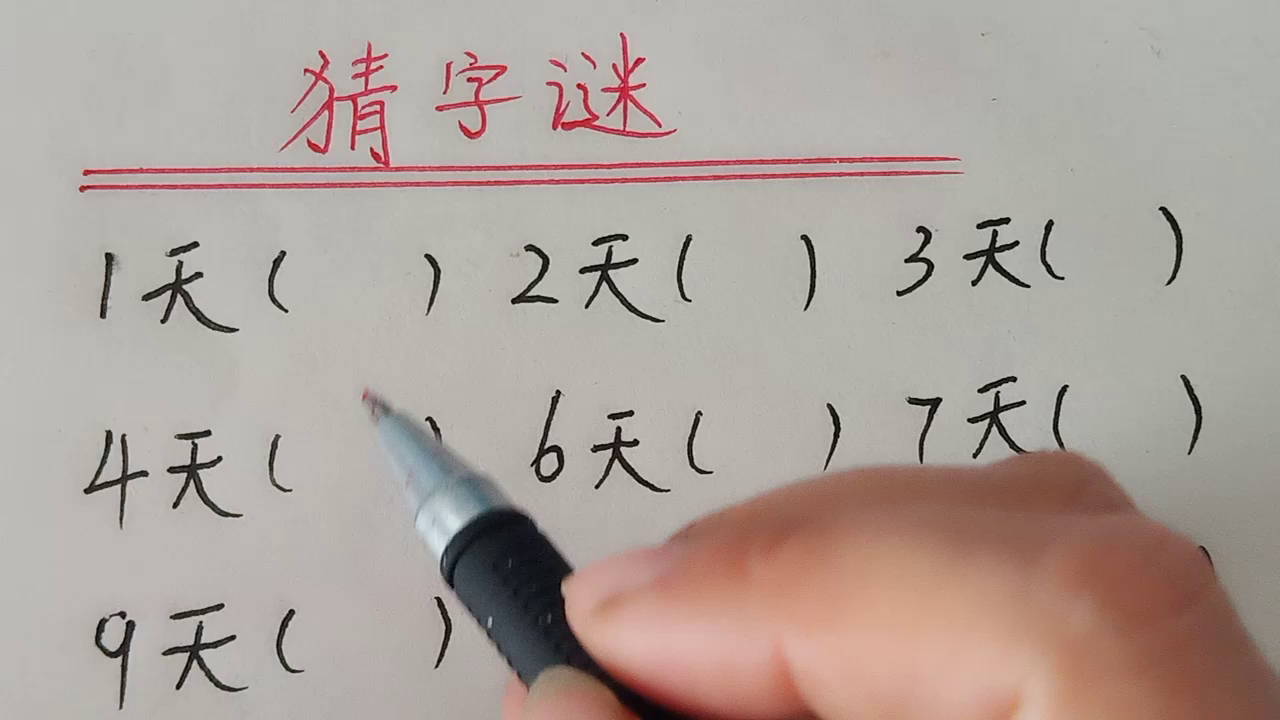 猜字谜
1天( ) 2天( ) 3天( )
4天( ) 6天( ) 7天( )
9天( )